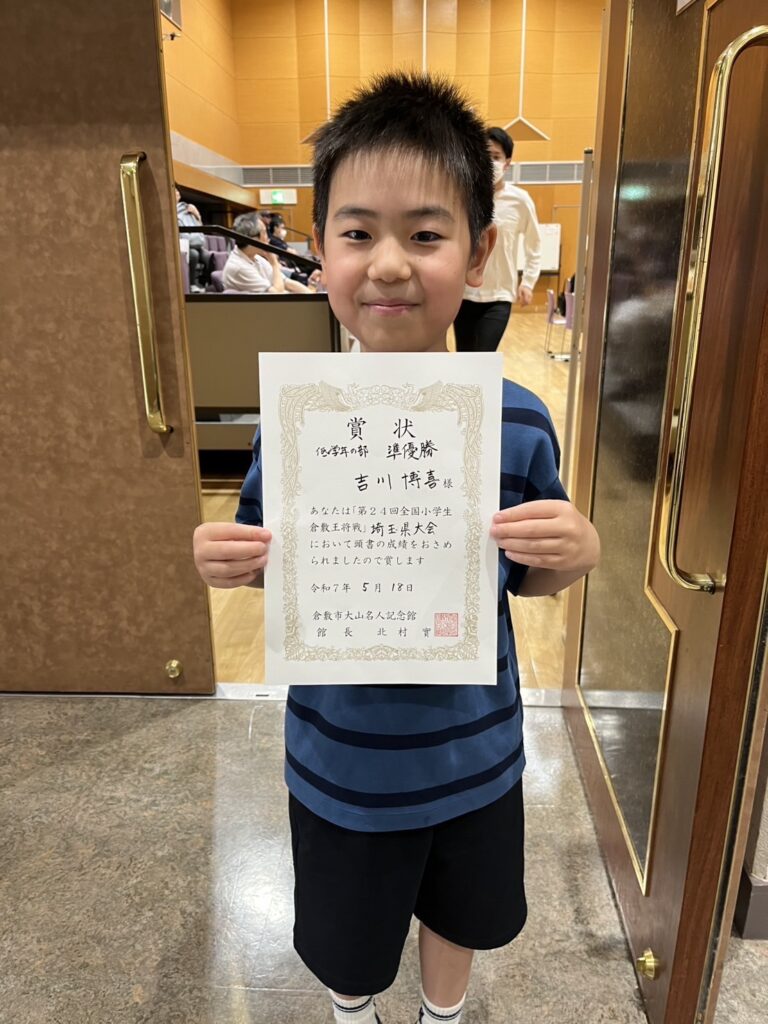 賞状
低学年の部 準優勝
吉川博喜様
あなたは「第24回全国小学生
倉敷王将戦」埼玉県大会
において頭書の成績をおさめ
られましたので賞します
令和7年 5月 18日
倉敷市大山名人記念館
館長 北村 實